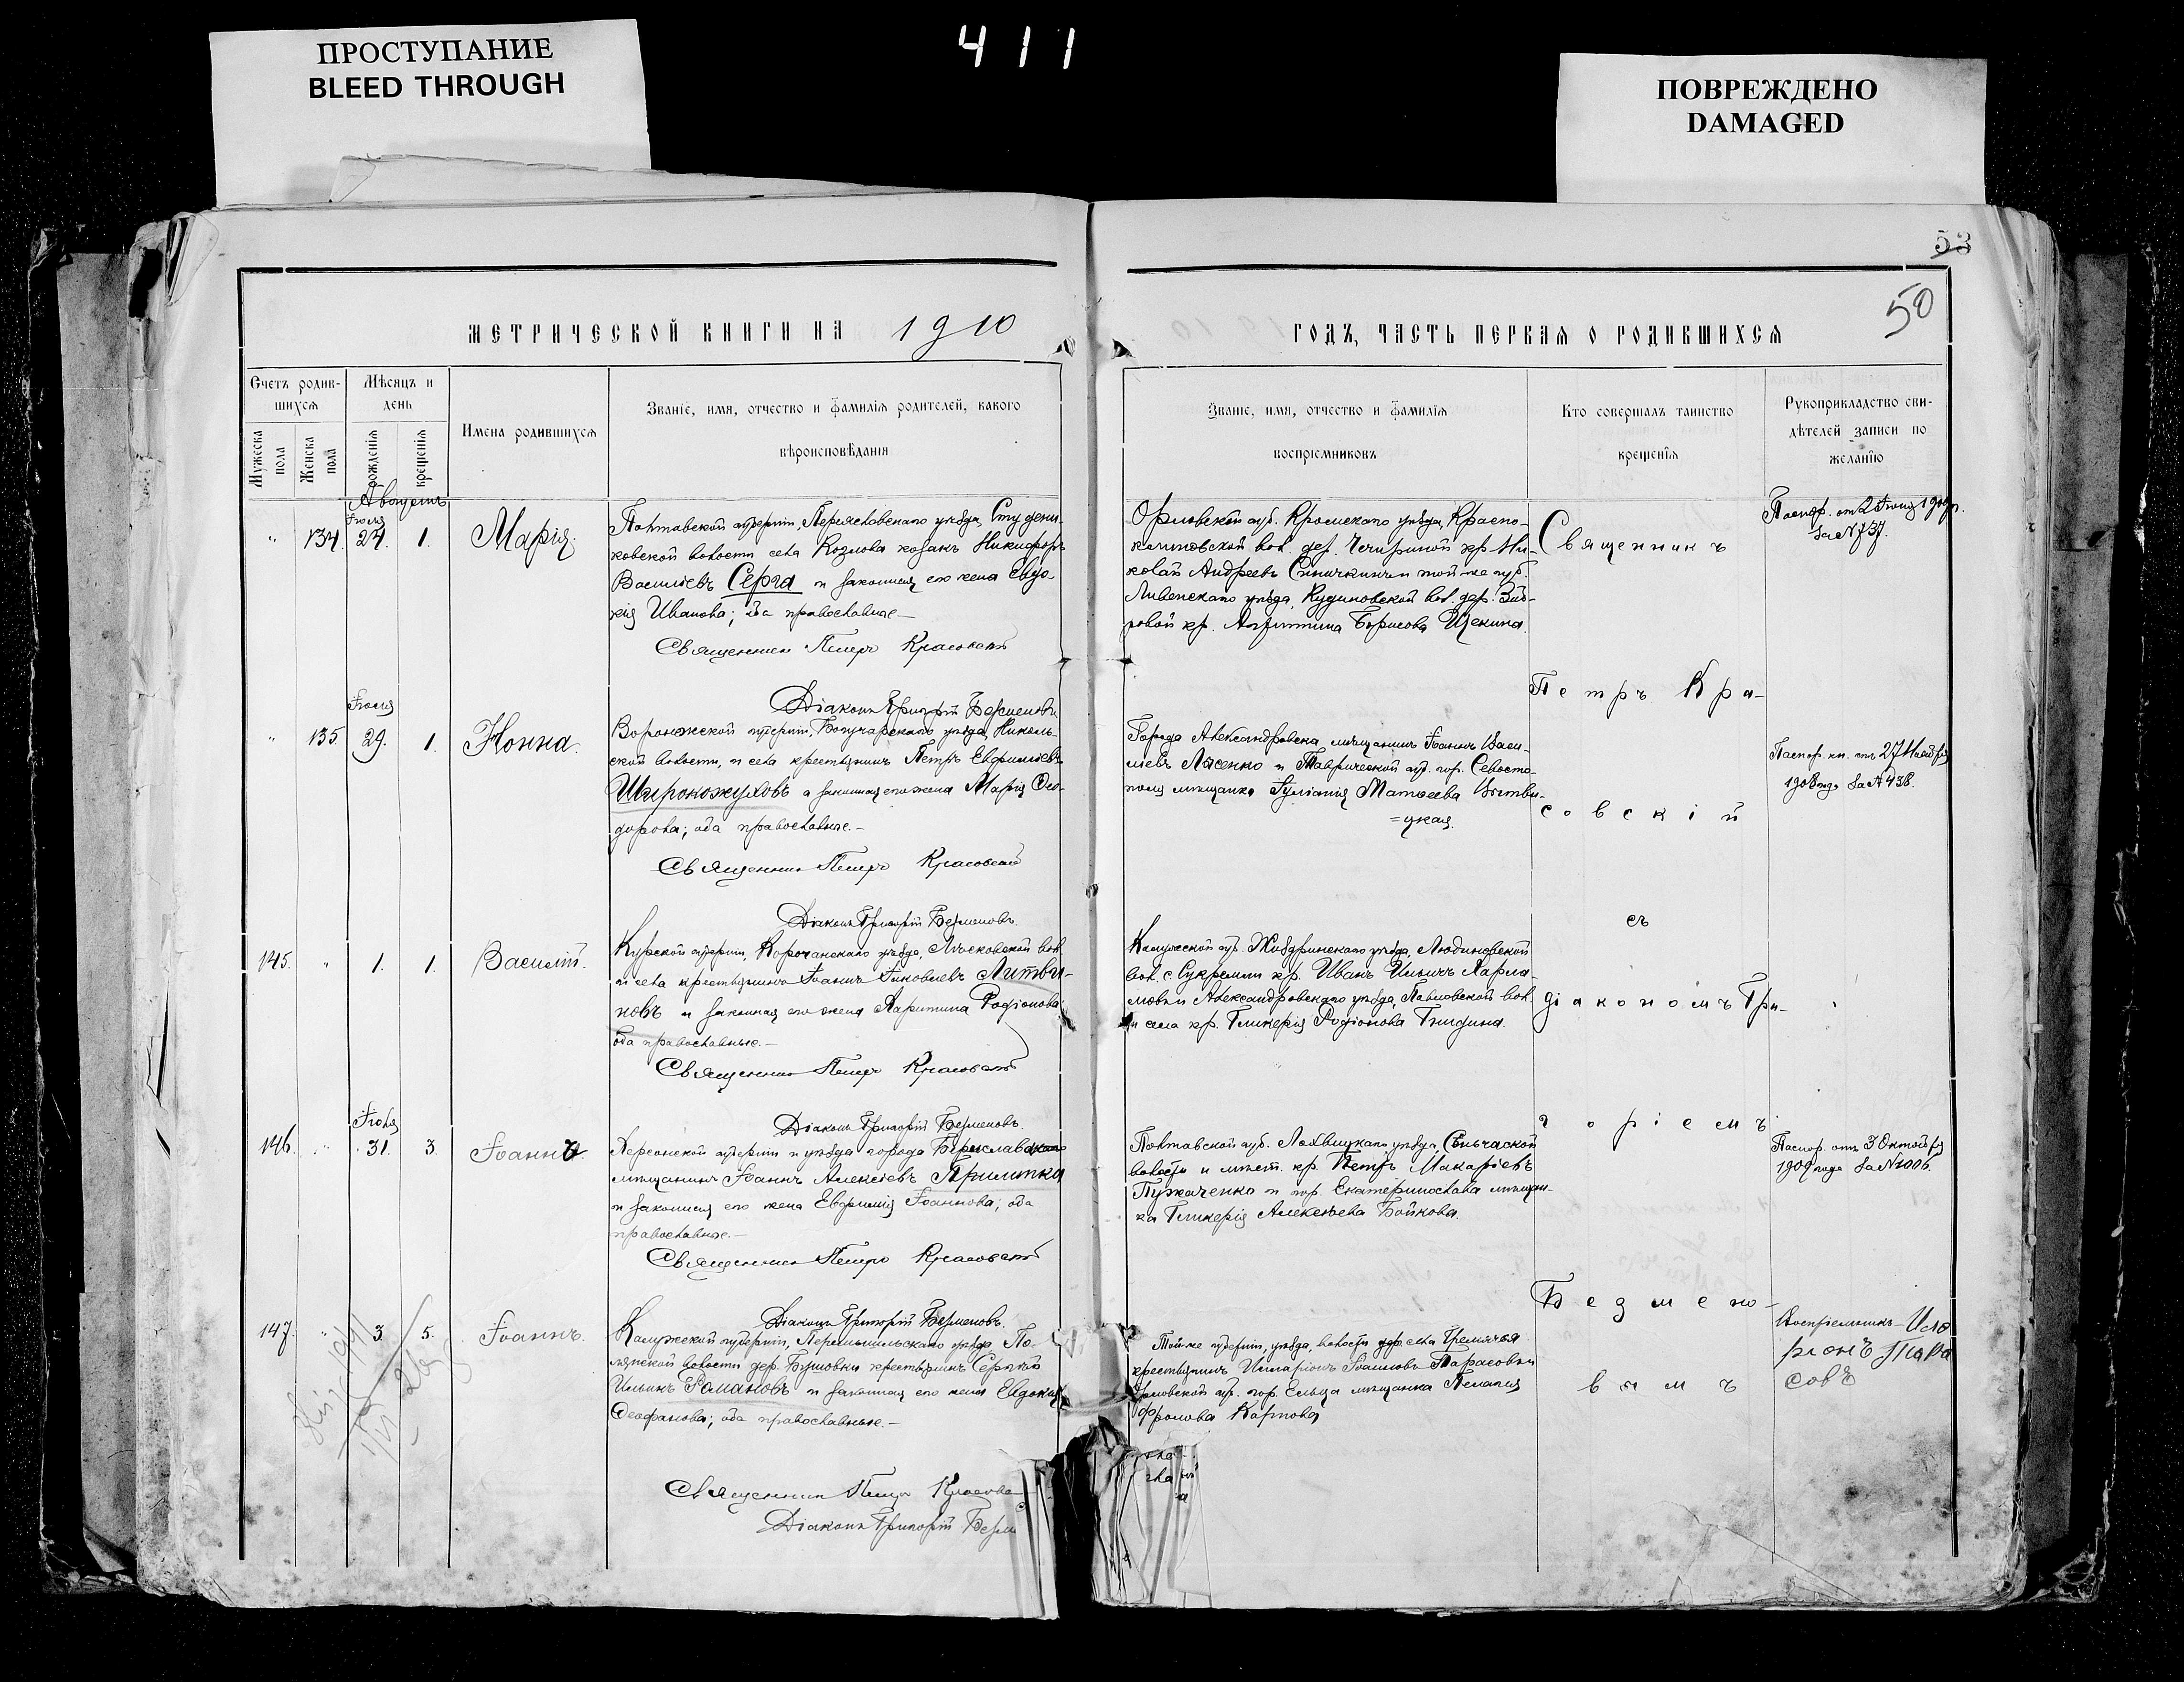 ПРОСТУПАНИЕ
BLEED THROUGH
411
ПОВРЕЖДЕНО
DAMAGED
53
50
МЕТРИЧЕСКОЙ КНИГИ НА 1910
ГОДЪ, ЧАСТЬ ПЕРВАЯ О РОДИВШИХСЯ
Счетъ родив-
шихся
Мужеска
пола
Женска
пола
Мѣсяцъ и
день
рожденія
крещенія
Имена родившихся
Званіе, имя, отчество и фамилія родителей, какого
вѣроисповѣданія
Званіе, имя, отчество и фамилія
воспріемниковъ
Кто совершалъ таинство
крещенія
Рукоприкладство сви-
дѣтелей записи по
желанію
Августъ
Іюля
" 134. 24. 1. Марія.
Полтавской губерніи, Переяславскаго уѣзда, Студени-
ковской волости села Козлова козакъ Никифоръ
Васильевъ Серга и законная его жена Евдо-
кія Иванова; оба православные.—
Священникъ Петръ Красовскій
Діаконъ Григорій Безменовъ
Орловской губ. Кромскаго уѣзда, Красно-
вол. дер. кр. Ни-
колай Андреевъ и той-же губ.
Ливенскаго уѣзда, Кудиновской вол. дер.
кр. Борисова Щекина.
Паспор. от 2
За № 737.
Іюля
" 135. 29. 1. Нонна.
Воронежской губерніи, Богучарскаго уѣзда, Николь-
ской волости, и села крестьянинъ Петръ Евфиміевъ
Широкожуховъ и законная его жена Марія Ѳео-
дорова; оба православные.—
Священникъ Петръ Красовскій
Діаконъ Григорій Безменовъ.
Города Александровска мѣщанинъ Іоаннъ Васи-
льевъ Лясенко и Таврической губ. гор. Севасто-
поля мѣщанка Іуліанія Матѳеева
=цкая.
Паспор. кн. отъ 27 Ноября
1908 года За № 438.
145. " 1. 1. Василій.
Курской губерніи, Корочанскаго уѣзда, вол.
и села крестьянинъ Іоаннъ Іаковлевъ Литви-
новъ и законная его жена Харитина Родіонова
оба православные.—
Священникъ Петръ Красовскій
Діаконъ Григорій Безменовъ.
Калужской губ. Жиздринскаго уѣзда, Людиновской
вол. с. Сукремли кр. Иванъ Ильичъ Харла-
мовъ и Александровскаго уѣзда, Павловской вол.
и села кр. Гликерія Родіонова Гнидина.
Іюля
146. " 31. 3. Іоаннъ.
Херсонской губерніи и уѣзда города Берислава
мѣщанинъ Іоаннъ Алексіевъ
и законная его жена Евфимія Іоаннова; оба
православные.—
Священникъ Петръ Красовскій
Діаконъ Григорій Безменовъ.
Полтавской губ. Лохвицкаго уѣзда, Сѣнчаской
волости и мѣст. кр. Петръ Макаріевъ
Пужаченко и гор. Екатеринослава мѣщан-
ка Гликерія Алексѣева Бойкова.
Паспор. отъ 3 Октября
1909 года За № 1006.
147. " 3. 5. Іоаннъ.
Калужской губерніи, Перемышльскаго уѣзда
волости дер. крестьянинъ Сергѣй
Ильинъ Романовъ и законная его жена Евдокія
Ѳеофанова; оба православные.—
Священникъ Петръ
Діаконъ Григорій
Той-же губерніи, уѣзда, волости села
крестьянинъ Иларіонъ Іоанновъ Тарасовъ и
Орловской губ. гор. Ельца мѣщанка Пелагія
Фролова Карпова
Воспріемникъ Ила
ріонъ Тара
совъ
Священникъ
Петръ Кра-
совскій
съ
діакономъ Гри-
горіемъ
Безмено-
вымъ